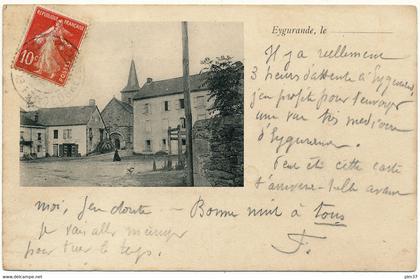 REPUBLIQUE FRANÇAISE
10c
POSTES
Eygurande, le
Il y a réellement
3 heures d'attente à Eygurande
j'en profite pour t'envoyer
une vue très médiocre
d'Eygurande.
Peut être cette carte
t'arrivera-t-elle avant
moi, j'en doute — Bonne nuit à tous
je vais aller manger
pour tuer le temps.
F.
www.delcampe.net